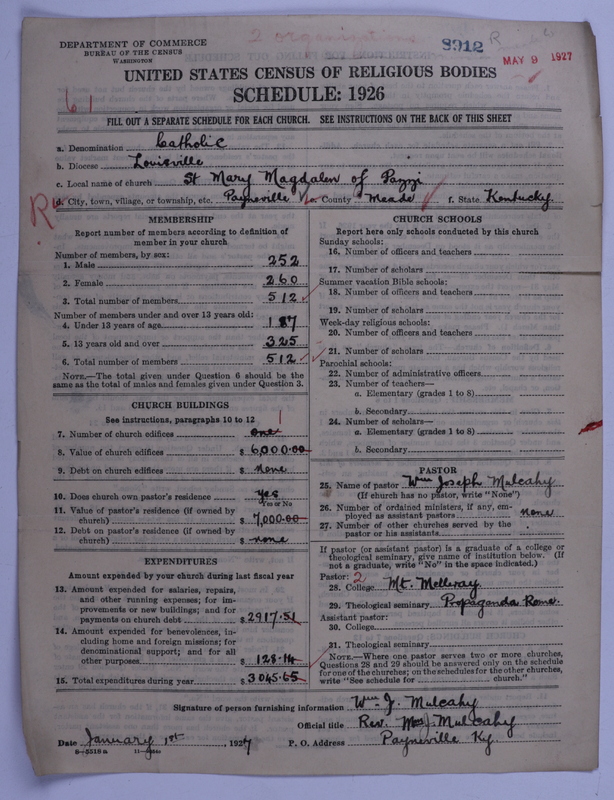 2 organizations
8912 R
MAY 9 1927
DEPARTMENT OF COMMERCE
BUREAU OF THE CENSUS
WASHINGTON
UNITED STATES CENSUS OF RELIGIOUS BODIES
SCHEDULE: 1926
61
FILL OUT A SEPARATE SCHEDULE FOR EACH CHURCH. SEE INSTRUCTIONS ON THE BACK OF THIS SHEET
a. Denomination Catholic
b. Diocese Louisville
c. Local name of church St Mary Magdalen of Pazzi
d. City, town, village, or township, etc. Payneville e. County Meade f. State Kentucky.
MEMBERSHIP
Report number of members according to definition of
member in your church.
Number of members, by sex:
1. Male 252
2. Female 260
3. Total number of members 512
Number of members under and over 13 years old:
4. Under 13 years of age 187
5. 13 years old and over 325
6. Total number of members 512
NOTE.—The total given under Question 6 should be
same as the total of males and females given under Question 3.
CHURCH BUILDINGS
See instructions, paragraphs 10 to 12
1
7. Number of church edifices one
8. Value of church edifices $ 6,000.00
9. Debt on church edifices $ none
10. Does church own pastor's residence yes
Yes or No
11. Value of pastor's residence (if owned by
church) $ 7,000.00
12. Debt on pastor's residence (if owned by
church) $ none
EXPENDITURES
Amount expended by your church during last fiscal year
13. Amount expended for salaries, repairs,
and other running expenses; for im-
provements or new buildings; and for
payments on church debt $ 2917.51
14. Amount expended for benevolences, in-
cluding home and foreign missions; for
denominational support; and for all
other purposes 128.14
15. Total expenditures during year $ 3045.65
CHURCH SCHOOLS
Report here only schools conducted by this church
Sunday schools:
16. Number of officers and teachers
17. Number of scholars
Summer vacation Bible schools:
18. Number of officers and teachers
19. Number of scholars
Week-day religious schools:
20. Number of officers and teachers
21. Number of scholars
Parochial schools:
22. Number of administrative officers
23. Number of teachers—
a. Elementary (grades 1 to 8)
b. Secondary
24. Number of scholars—
a. Elementary (grades 1 to 8)
b. Secondary
PASTOR
25. Name of pastor Wm Joseph Mulcahy
(If church has no pastor, write "None")
26. Number of ordained ministers, if any, em-
ployed as assistant pastors none
27. Number of other churches served by the
pastor or his assistants
If pastor (or assistant pastor) is a graduate of a college or
theological seminary, give name of institution below. (If
not a graduate, write "No" in the space indicated.)
Pastor: 2
28. College Mt. Melleray
29. Theological seminary Propaganda Rome.
Assistant pastor:
30. College
31. Theological seminary
NOTE.—Where one pastor serves two or more churches,
Questions 28 and 29 should be answered only on the schedule
for one of the churches; on the schedules for the other churches,
write "See schedule for church."
Signature of person furnishing information Wm. J. Mulcahy
Official title Rev. Wm J. Mulcahy
Date January 1st, 1927 P. O. Address Payneville Ky.